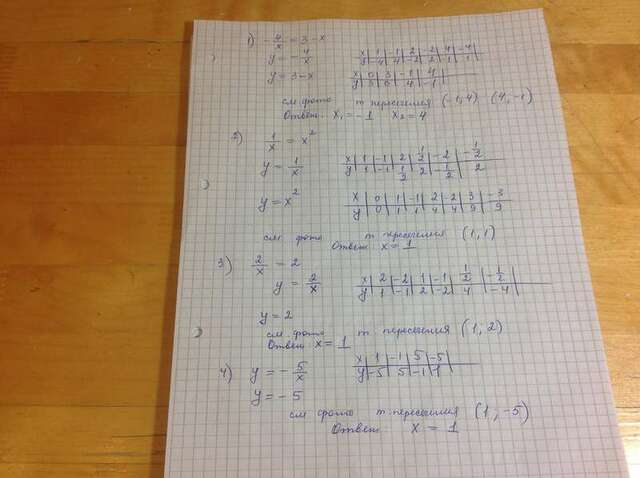 1) -4/x = 3-x
y = -4/x
x | 1 | -1 | 2 | -2 | 4 | -4
y | -4 | 4 | -2 | 2 | -1 | 1
y = 3-x
x | 0 | 3 | -1 | 4
y | 3 | 0 | 4 | -1
см фото т пересечения (-1,4) (4,-1)
Ответ: x₁ = -1 x₂ = 4
2) 1/x = x²
y = 1/x
x | 1 | -1 | 2 | 1/2 | -2 | -1/2
y | 1 | -1 | 1/2 | 2 | -1/2 | 2
y = x²
x | 0 | 1 | -1 | 2 | -2 | 3 | -3
y | 0 | 1 | 1 | 4 | 4 | 9 | 9
см фото т пересечения (1,1)
Ответ: x = 1
3) 2/x = 2
y = 2/x
x | 2 | -2 | 1 | -1 | 1/2 | -1/2
y | 1 | -1 | 2 | -2 | 4 | -4
y = 2
см фото т пересечения (1,2)
Ответ x = 1
4) y = -5/x
x | 1 | -1 | 5 | -5
y | -5 | 5 | -1 | 1
y = -5
см фото т пересечения (1,-5)
Ответ: x = 1